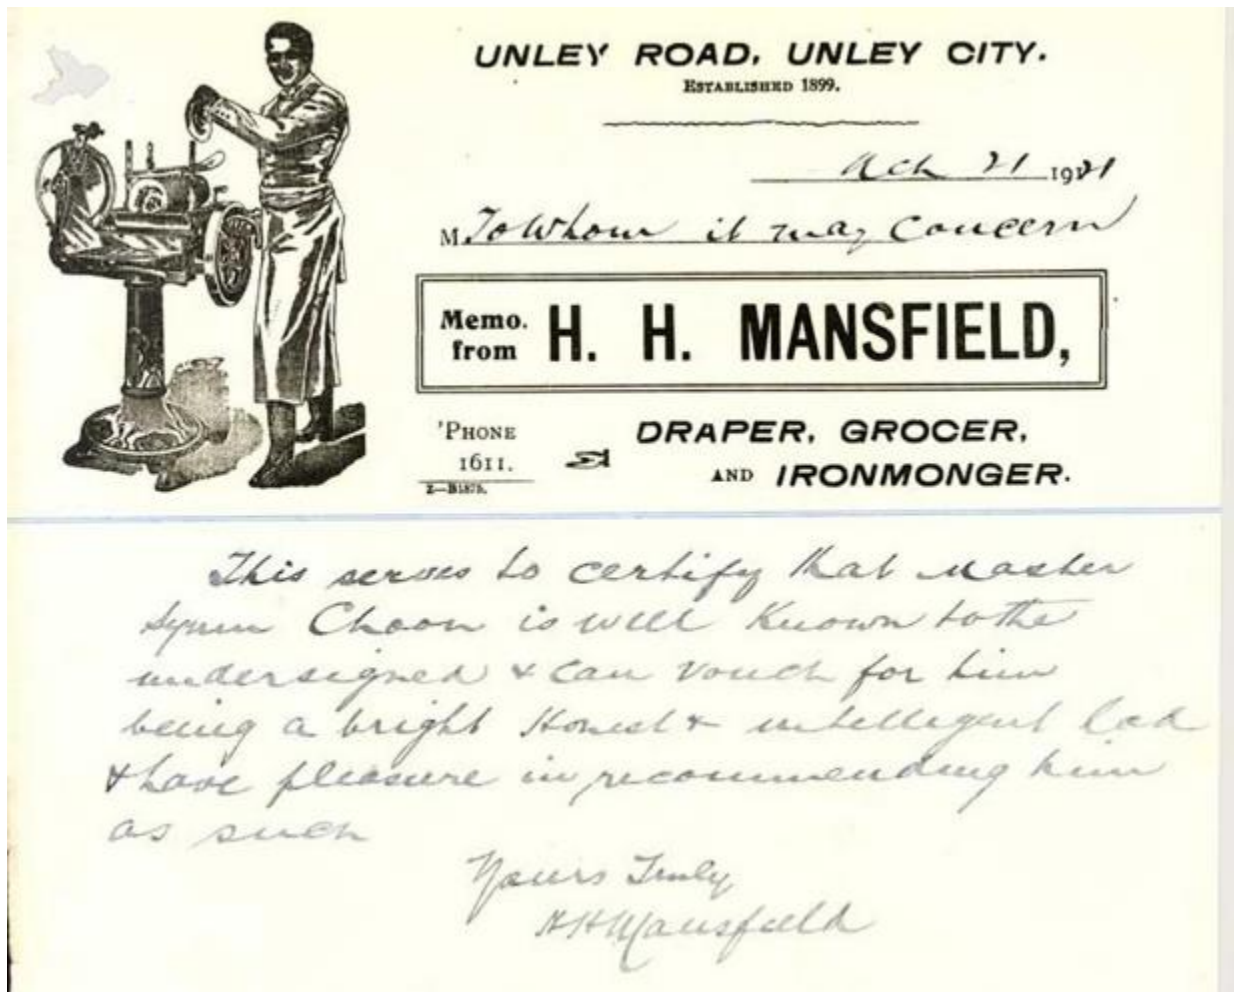 UNLEY ROAD, UNLEY CITY.
ESTABLISHED 1899.
21 1921
M To Whom it may Concern
Memo. from H. H. MANSFIELD,
'PHONE 1611.
DRAPER, GROCER,
AND IRONMONGER.
Z—B1875.
This serves to certify that Master
Choon is well Known to the
undersigned & can vouch for him
being a bright Honest & intelligent lad
& have pleasure in recommending him
as such
Yours Truly
HH Mansfield